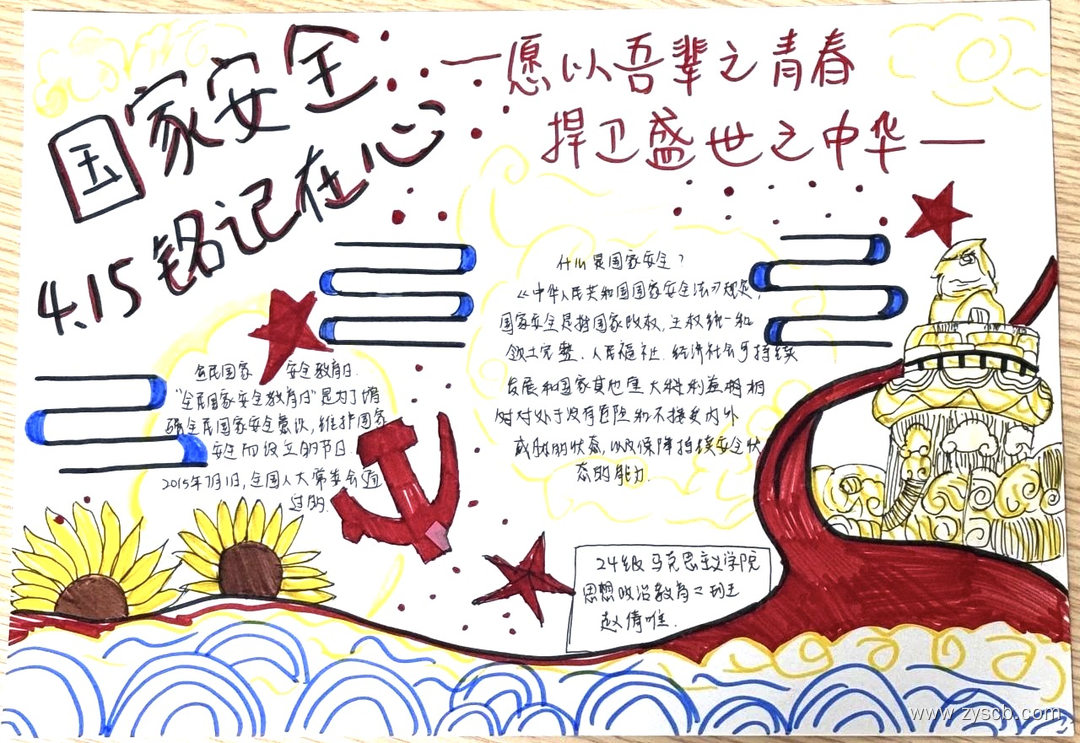 国家安全
4.15铭记在心
一愿以吾辈之青春
捍卫盛世之中华一
什么是国家安全?
《中华人民共和国国家安全法》规定,
国家安全是指国家政权,主权统一和
领土完整、人民福祉、经济社会可持续
发展和国家其他重大利益相
对处于没有危险和不接受内外
威胁的状态,以及保障持续安全状
态的能力.
全民国家 安全教育日.
"全民国家安全教育日"是为了增
强全民国家安全意识,维护国家
安全而设立的节日.
2015年7月1日,全国人大常委会通
过的.
24级马克思主义学院
思想政治教育二班
赵倩唯.
www.zyscb.com